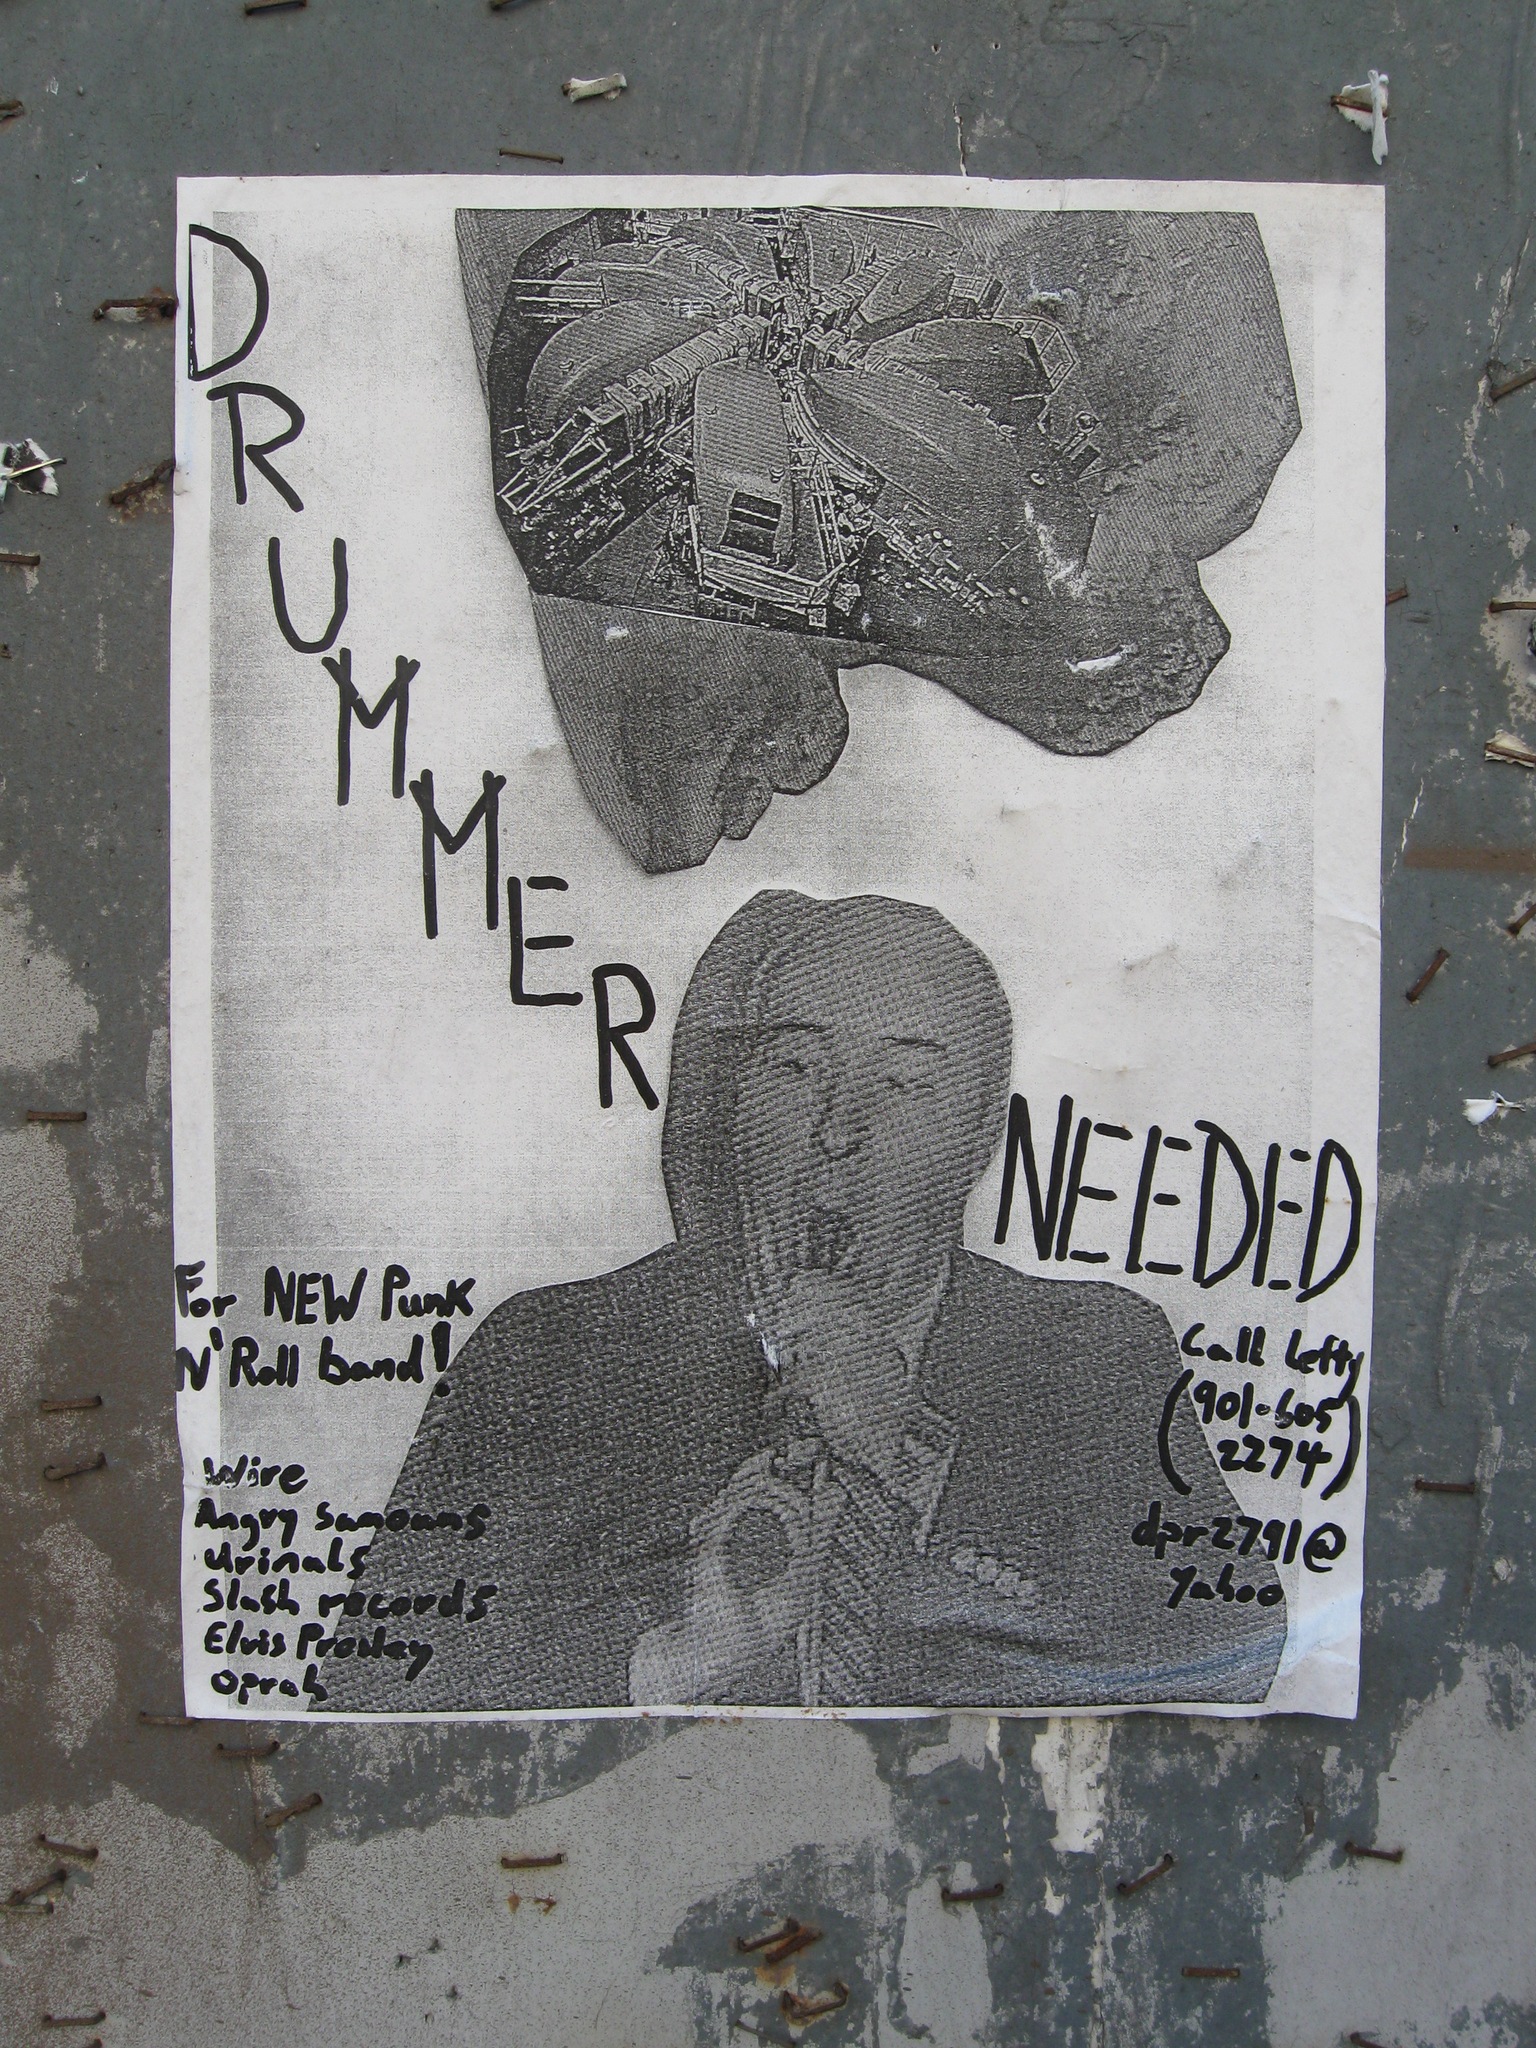 DRUMMER
NEEDED
For NEW Punk
N' Roll band!
Wire
Angry Samoans
Urinals
Slash records
Elvis Presley
Oprah
Call Lefty
(901-605
2274)
dpr2791@
Yahoo